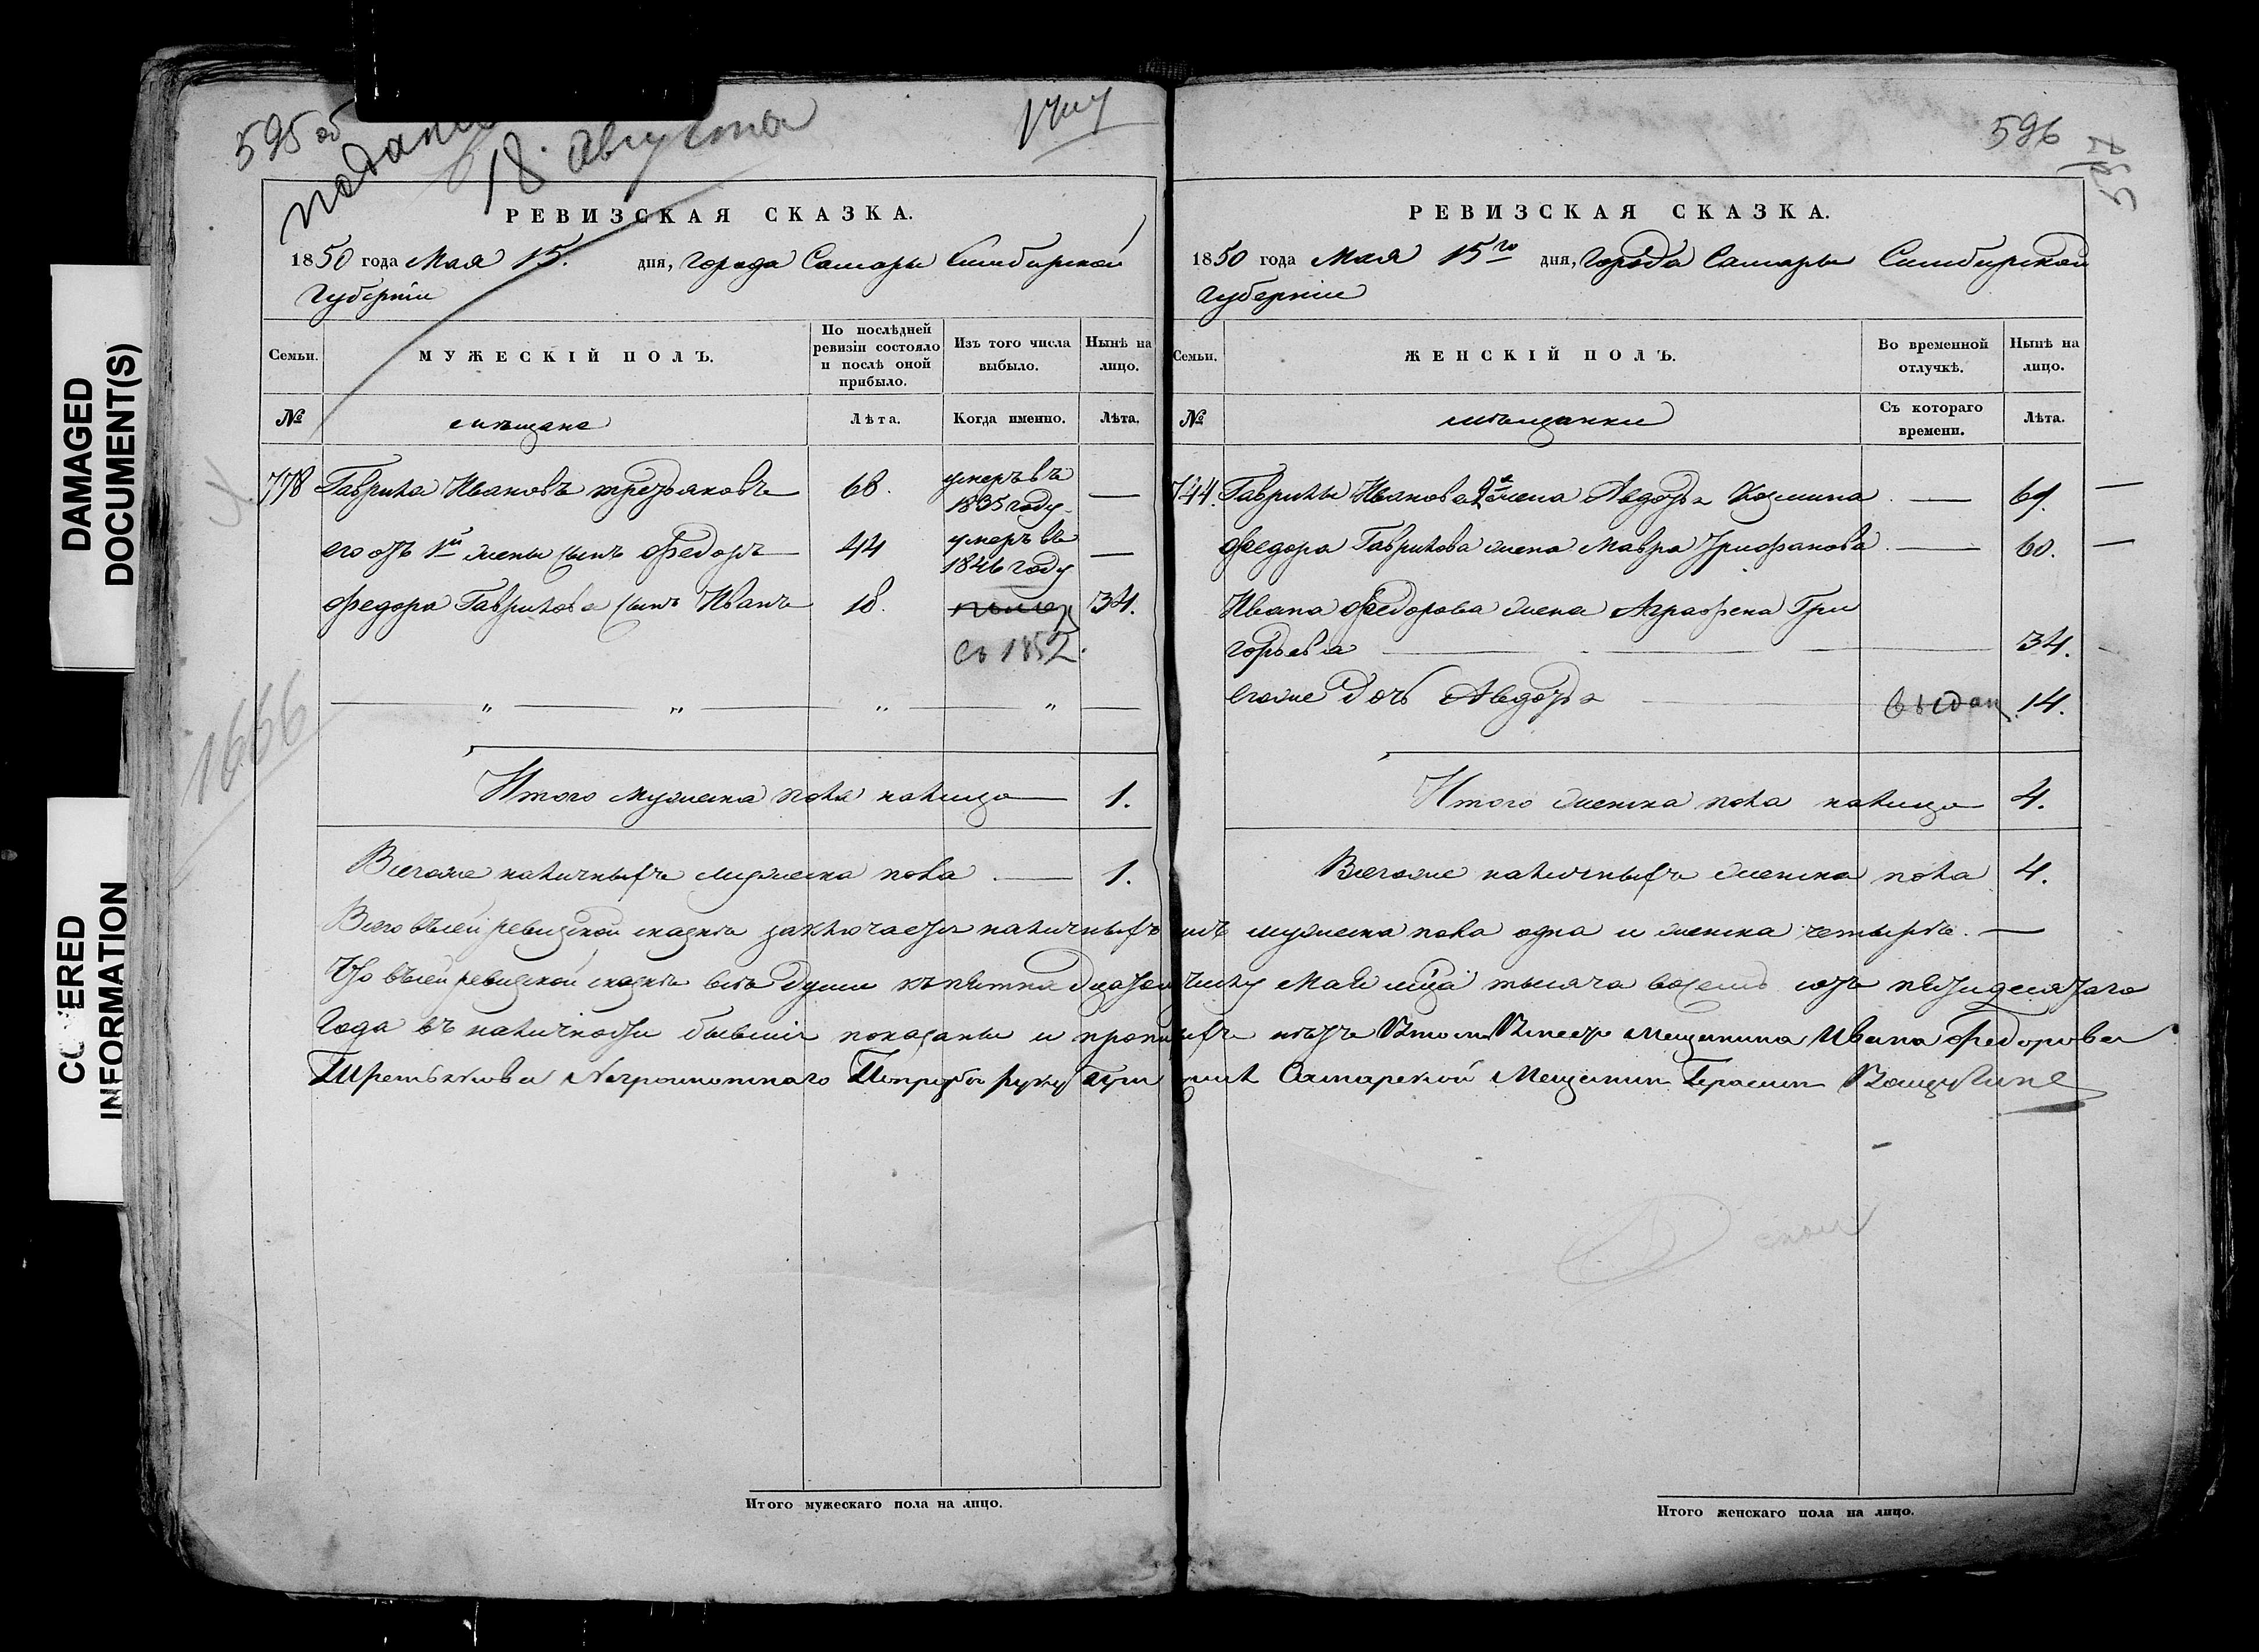 595 об
подана
18 августа
РЕВИЗСКАЯ СКАЗКА.
1850 года Мая 15. дня, города Самары Симбирской
Губернiи
Семьи.
МУЖЕСКІЙ ПОЛЪ.
По послѣдней ревизіи состояло и послѣ оной прибыло.
Изъ того числа выбыло.
Нынѣ на лицо.
№
мѣщане
Лѣта.
Когда именно.
Лѣта.
778 Гаврила Ивановъ третьяковъ 68. умеръ въ 1835 году —
его отъ 1й жены сынъ Федоръ 44 умеръ въ 1846 году —
Федора Гаврилова сынъ Иванъ 18. 34.
съ 1852.
1666
Итого мужеска пола налицо 1.
Всегоже наличныхъ мужеска пола 1.
Итого мужескаго пола на лицо.
596
597
РЕВИЗСКАЯ СКАЗКА.
1850 года Мая 15го дня, Города Самары Симбирской
Губернiи
Семьи.
ЖЕНСКІЙ ПОЛЪ.
Во временной отлучкѣ.
Нынѣ на лицо.
№
мѣщанки
Съ котораго времени.
Лѣта.
744. Гаврилы Иванова 2я жена Авдотья Козмина — 69.
Федора Гаврилова жена Мавра Трифанова — 60.
Ивана Федорова жена Аграфена Гри
горьева 34.
Егоже дочь Авдотья выдан 14.
Итого женска пола налицо 4.
Всегоже наличныхъ женска пола 4.
Всего въсей ревизской сказкѣ заключается наличныхъ мужеска пола одна и женска четыре.
Что въсей ревизской сказкѣ всѣ души къ пятнадцатому числу Мая мца тысяча восемь сотъ пятидесятаго
Года въ наличности бывшiя показаны и прописныхъ нѣтъ Втом Вместо Мещанина Ивана Федорова
Третьякова Неграмотнаго Попрозбѣ руку Самарской Мещанин Герасим
Итого женскаго пола на лицо.
DAMAGED
DOCUMENT(S)
COVERED
INFORMATION